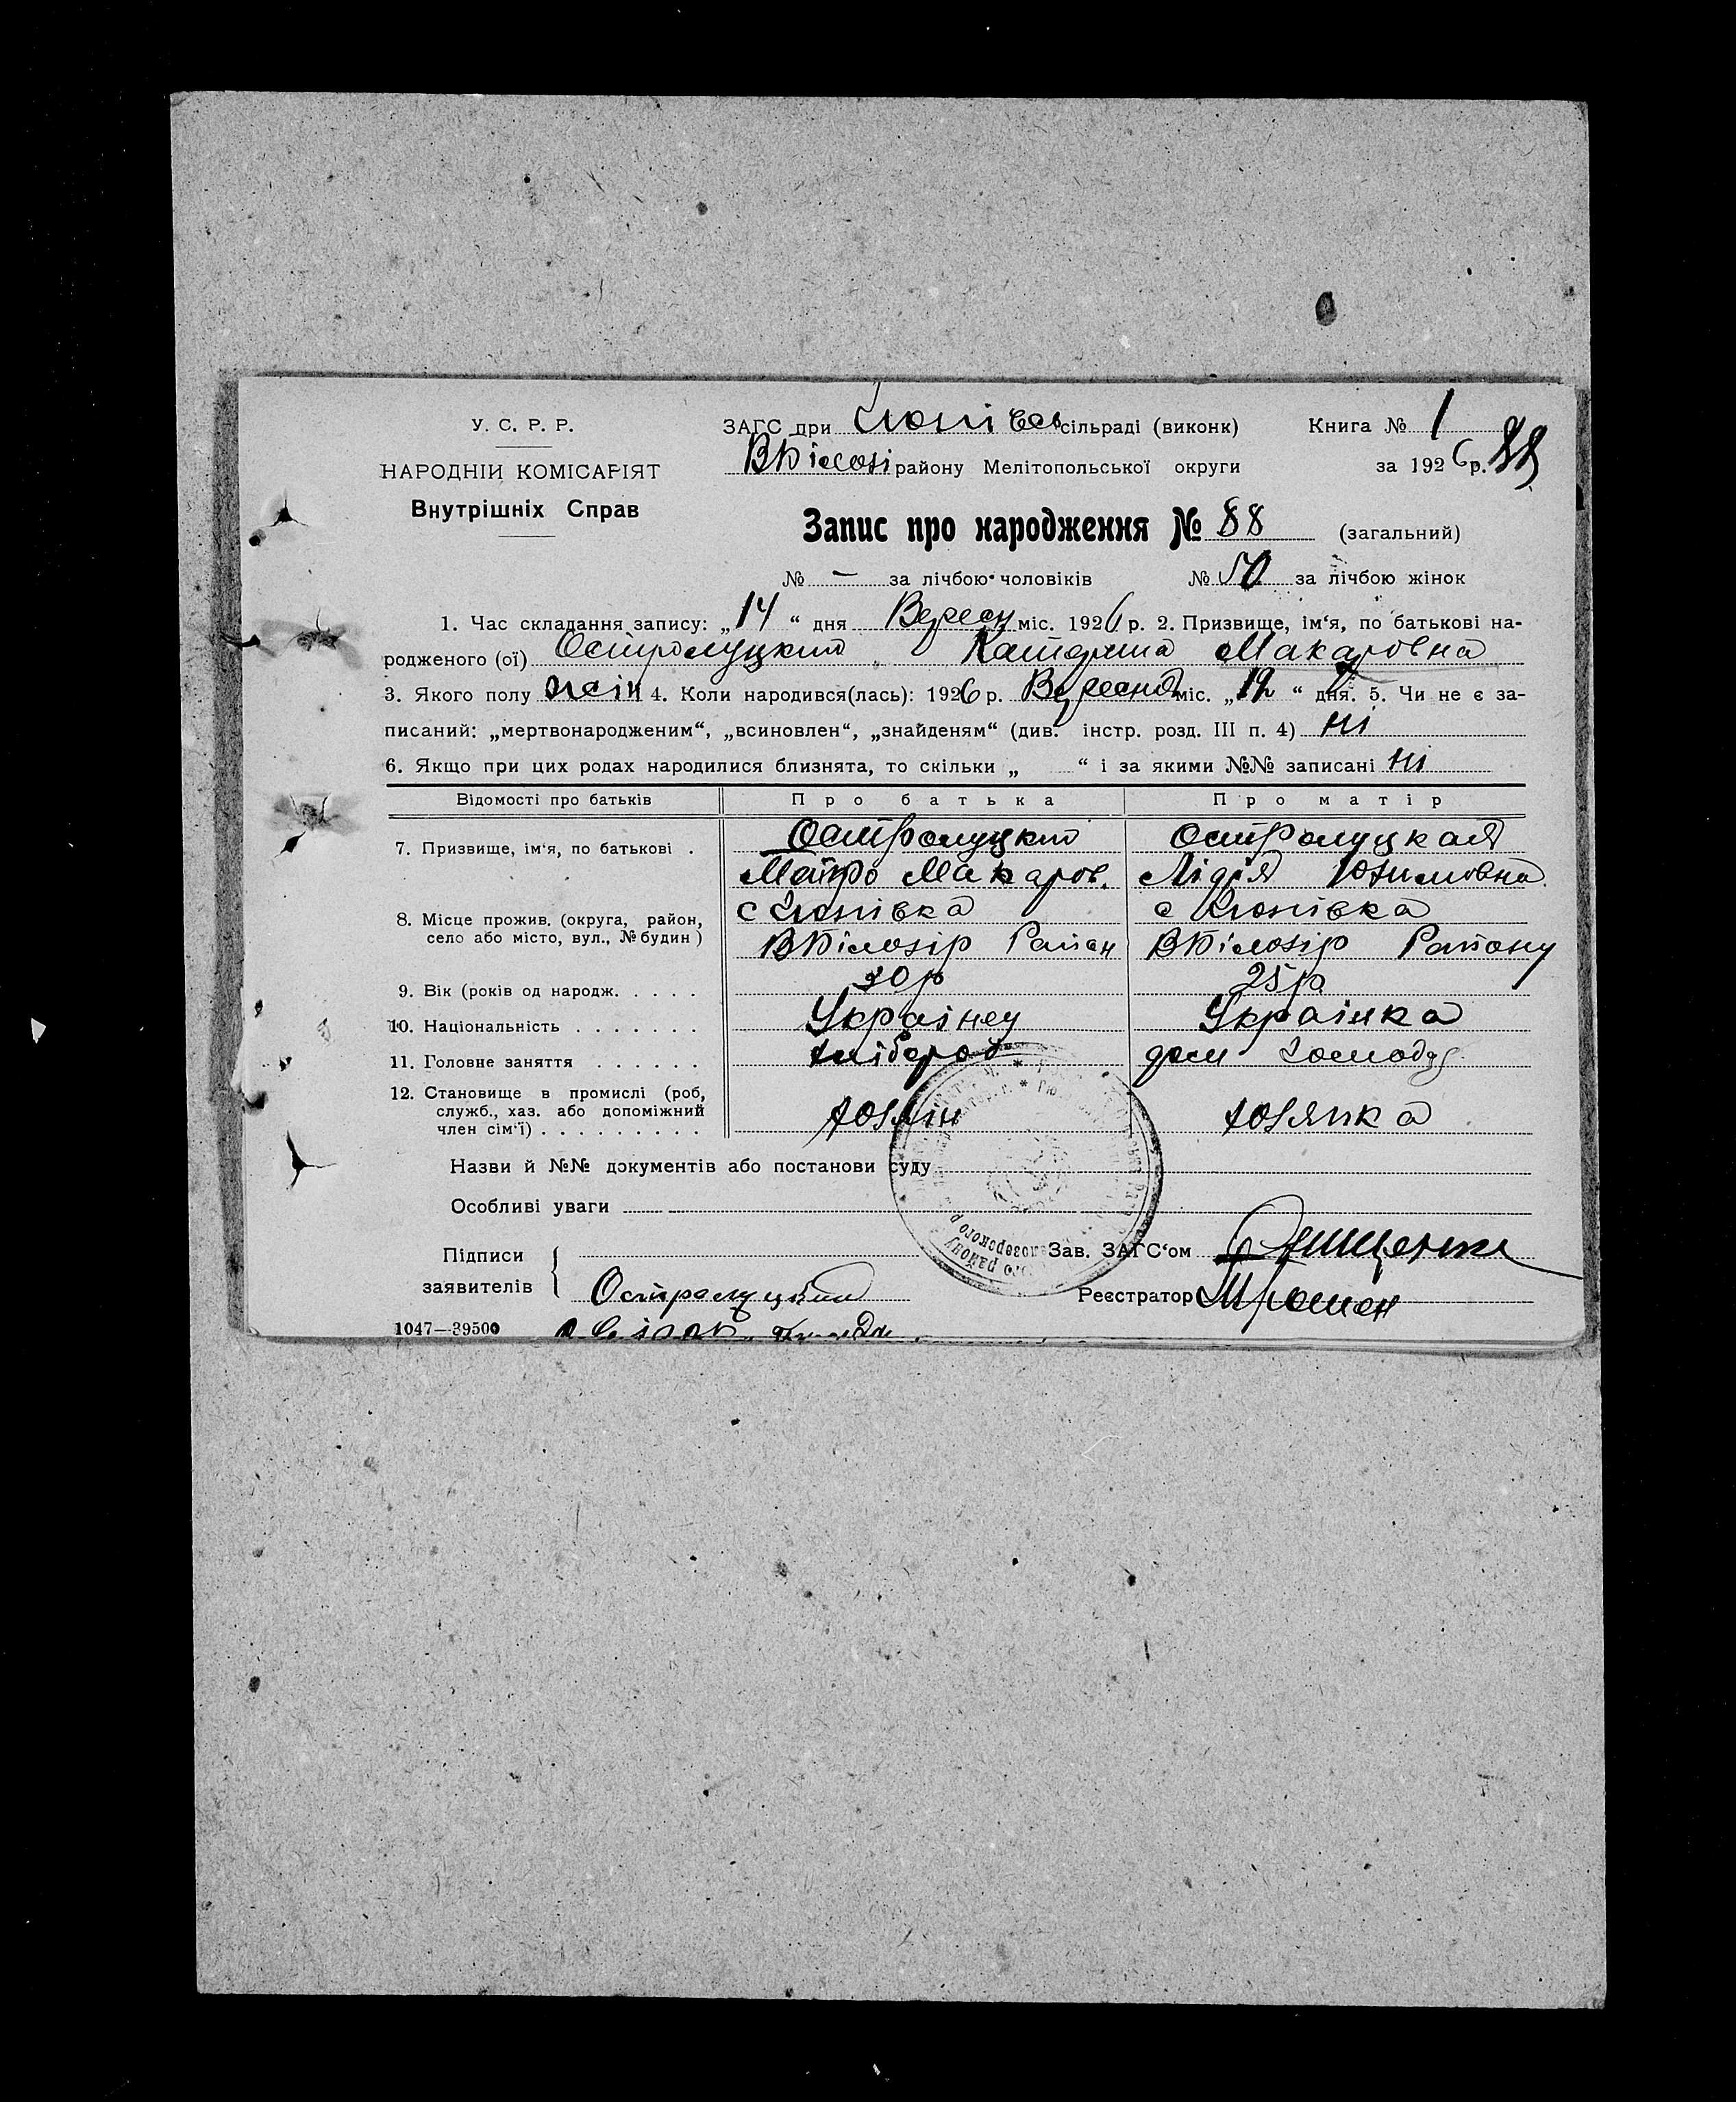 У. С. Р. Р.
НАРОДНІЙ КОМІСАРІЯТ
Внутрішніх Справ
ЗАГС при сільраді (виконк)
району Мелітопольської округи
Книга № 1
за 1926 р. 88
Запис про народження № 88 (загальний)
№ – за лічбою чоловіків № 50 за лічбою жінок
1. Час складання запису: „14“ дня Вересн міс. 1926 р. 2. Призвище, ім‘я, по батькові на-
родженого (ої) Остролуцкий Катерина Макаровна
3. Якого полу жсін 4. Коли народився(лась): 1926 р. Вересня міс. „12“ дня. 5. Чи не є за-
писаний: „мертвонародженим“, „всиновлен“, „знайденям“ (див. інстр. розд. III п. 4) ні
6. Якщо при цих родах народилися близнята, то скільки „ “ і за якими №№ записані ні
Відомості про батьків Про батька Про матір
7. Призвище, ім‘я, по батькові . Остролуцкий Остролуцкая
Макаров. Лідія
8. Місце прожив. (округа, район,
село або місто, вул., № будин)
с Люпівка с Люпівка
ВБілозір Район ВБілозір Району
9. Вік (років од народж. . . . . 30 р 25 р
10. Національність . . . . . . . Українец Українка
11. Головне заняття . . . . . . хлібороб дом Господ
12. Становище в промислі (роб,
служб., хаз. або допоміжний
член сім‘ї) . . . . . . . . .
хозяїн хозяйка
Назви й №№ документів або постанови суду
Особливі уваги
Підписи
заявителів
Остролуцкий
Зав. ЗАГС‘ом
Реєстратор
1047—39500